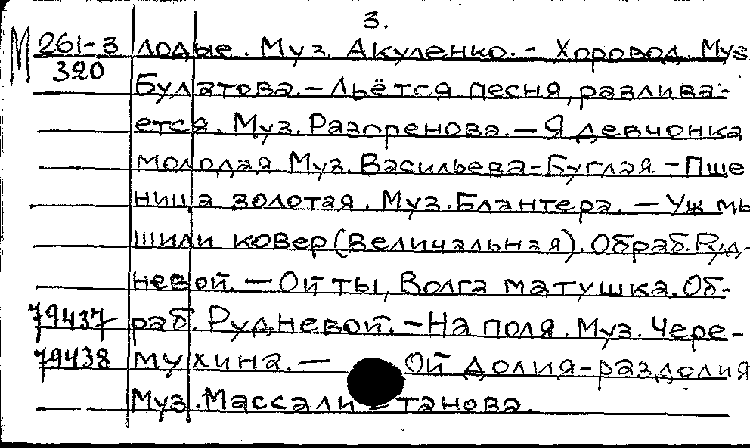 3.
М 261-3 лодые. Муз. Акуленко. - Хоровод. Муз
320
Булатова. - Льётся песня, разлива-
ется. Муз. Разоренова. - Я девчонка
молодая Муз. Васильева-Буглая - Пше
ница золотая. Муз. Блантера. - Уж мы
шили ковер (величальная). Обраб. Руд-
невой. - Ой ты, Волга матушка. Об-
79437 раб. Рудневой. - На поля. Муз. Чере-
79438 мухина. - Ой долия-раздолия
Муз. Массалитанова.